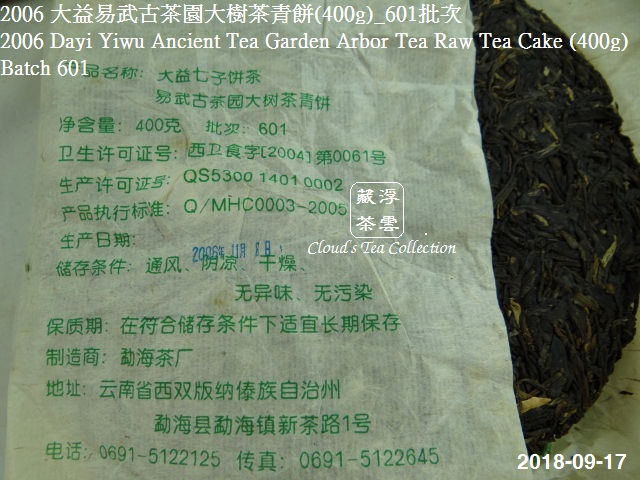 2006 大益易武古茶園大樹茶青餅(400g)_601批次
2006 Dayi Yiwu Ancient Tea Garden Arbor Tea Raw Tea Cake (400g)
Batch 601
产品名称: 大益七子饼茶
易武古茶园大树茶青饼
净含量: 400克 批次: 601
卫生许可证号: 西卫食字[2004]第0061号
生产许可证号: QS5300 1401 0002
产品执行标准: Q/MHC0003-2005
生产日期:
2006年11月8日
储存条件: 通风、阴凉、干燥、
无异味、无污染
保质期: 在符合储存条件下适宜长期保存
制造商: 勐海茶厂
地址: 云南省西双版纳傣族自治州
勐海县勐海镇新茶路1号
电话: 0691-5122125 传真: 0691-5122645
藏浮
茶雲
Cloud's Tea Collection
2018-09-17